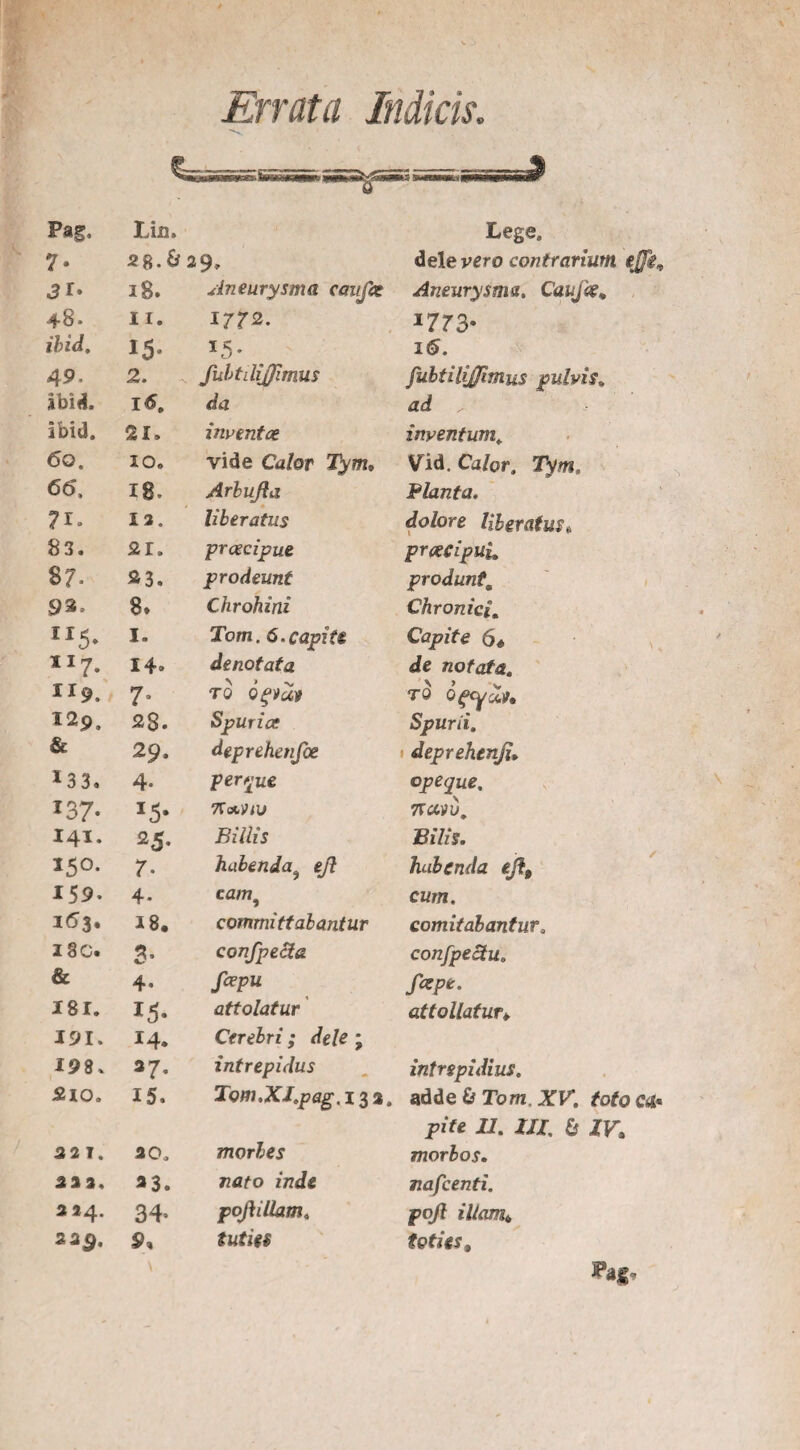 Errata Indicis.
Pag. Lin. Lege.
7. 28. & 29. dele vero contrarium eſſe.
31. 18. Aneurysma cauſæ Aneurysma. Cauſæ.
48. 11. 1772. 1773.
ibid. 15. 15. 16.
49. 2. ſubtiliſſimus ſubtiliſſimus pulvis.
ibid. 16. da ad
ibid. 21. inventæ inventum.
60. 10. vide Calor Tym. Vid. Calor. Tym.
66. 18. Arbuſta Planta.
71. 12. liberatus dolore liberatus.
83. 21. præcipue præcipui.
87. 23. prodeunt produnt.
92. 8. Chrohini Chronici.
115. 1. Tom. 6. capite Capite 6.
117. 14. denotata de notata.
119. 7. τὸ ὀρνᾶν τὸ ὀργᾶν.
129. 28. Spuriæ Spurii.
& 29. deprehenſœ deprehenſi.
133. 4. perque opeque.
137. 15. πανιυ πανύ.
141. 25. Billis Bilis.
150. 7. habenda, eſt habenda eſt,
159. 4. eam, cum.
163. 18. committabantur comitabantur.
180. 3. conſpecta conſpectu.
& 4. ſæpu ſæpe.
181. 15. attolatur attollatur.
191. 14. Cerebri ; dele ;
198. 27. intrepidus intrepidius.
210. 15. Tom. XI. pag. 132. adde & Tom. XV. toto ca-
pite II. III. & IV.
221. 20. morbes morbos.
222. 23. nato inde naſcenti.
224. 34. poſtillam. poſt illam.
229. 9. tuties toties.
Pag.